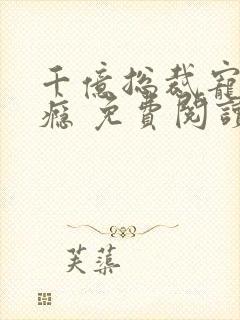 千億总裁寵
瘾 免費閱讀
芙蕖